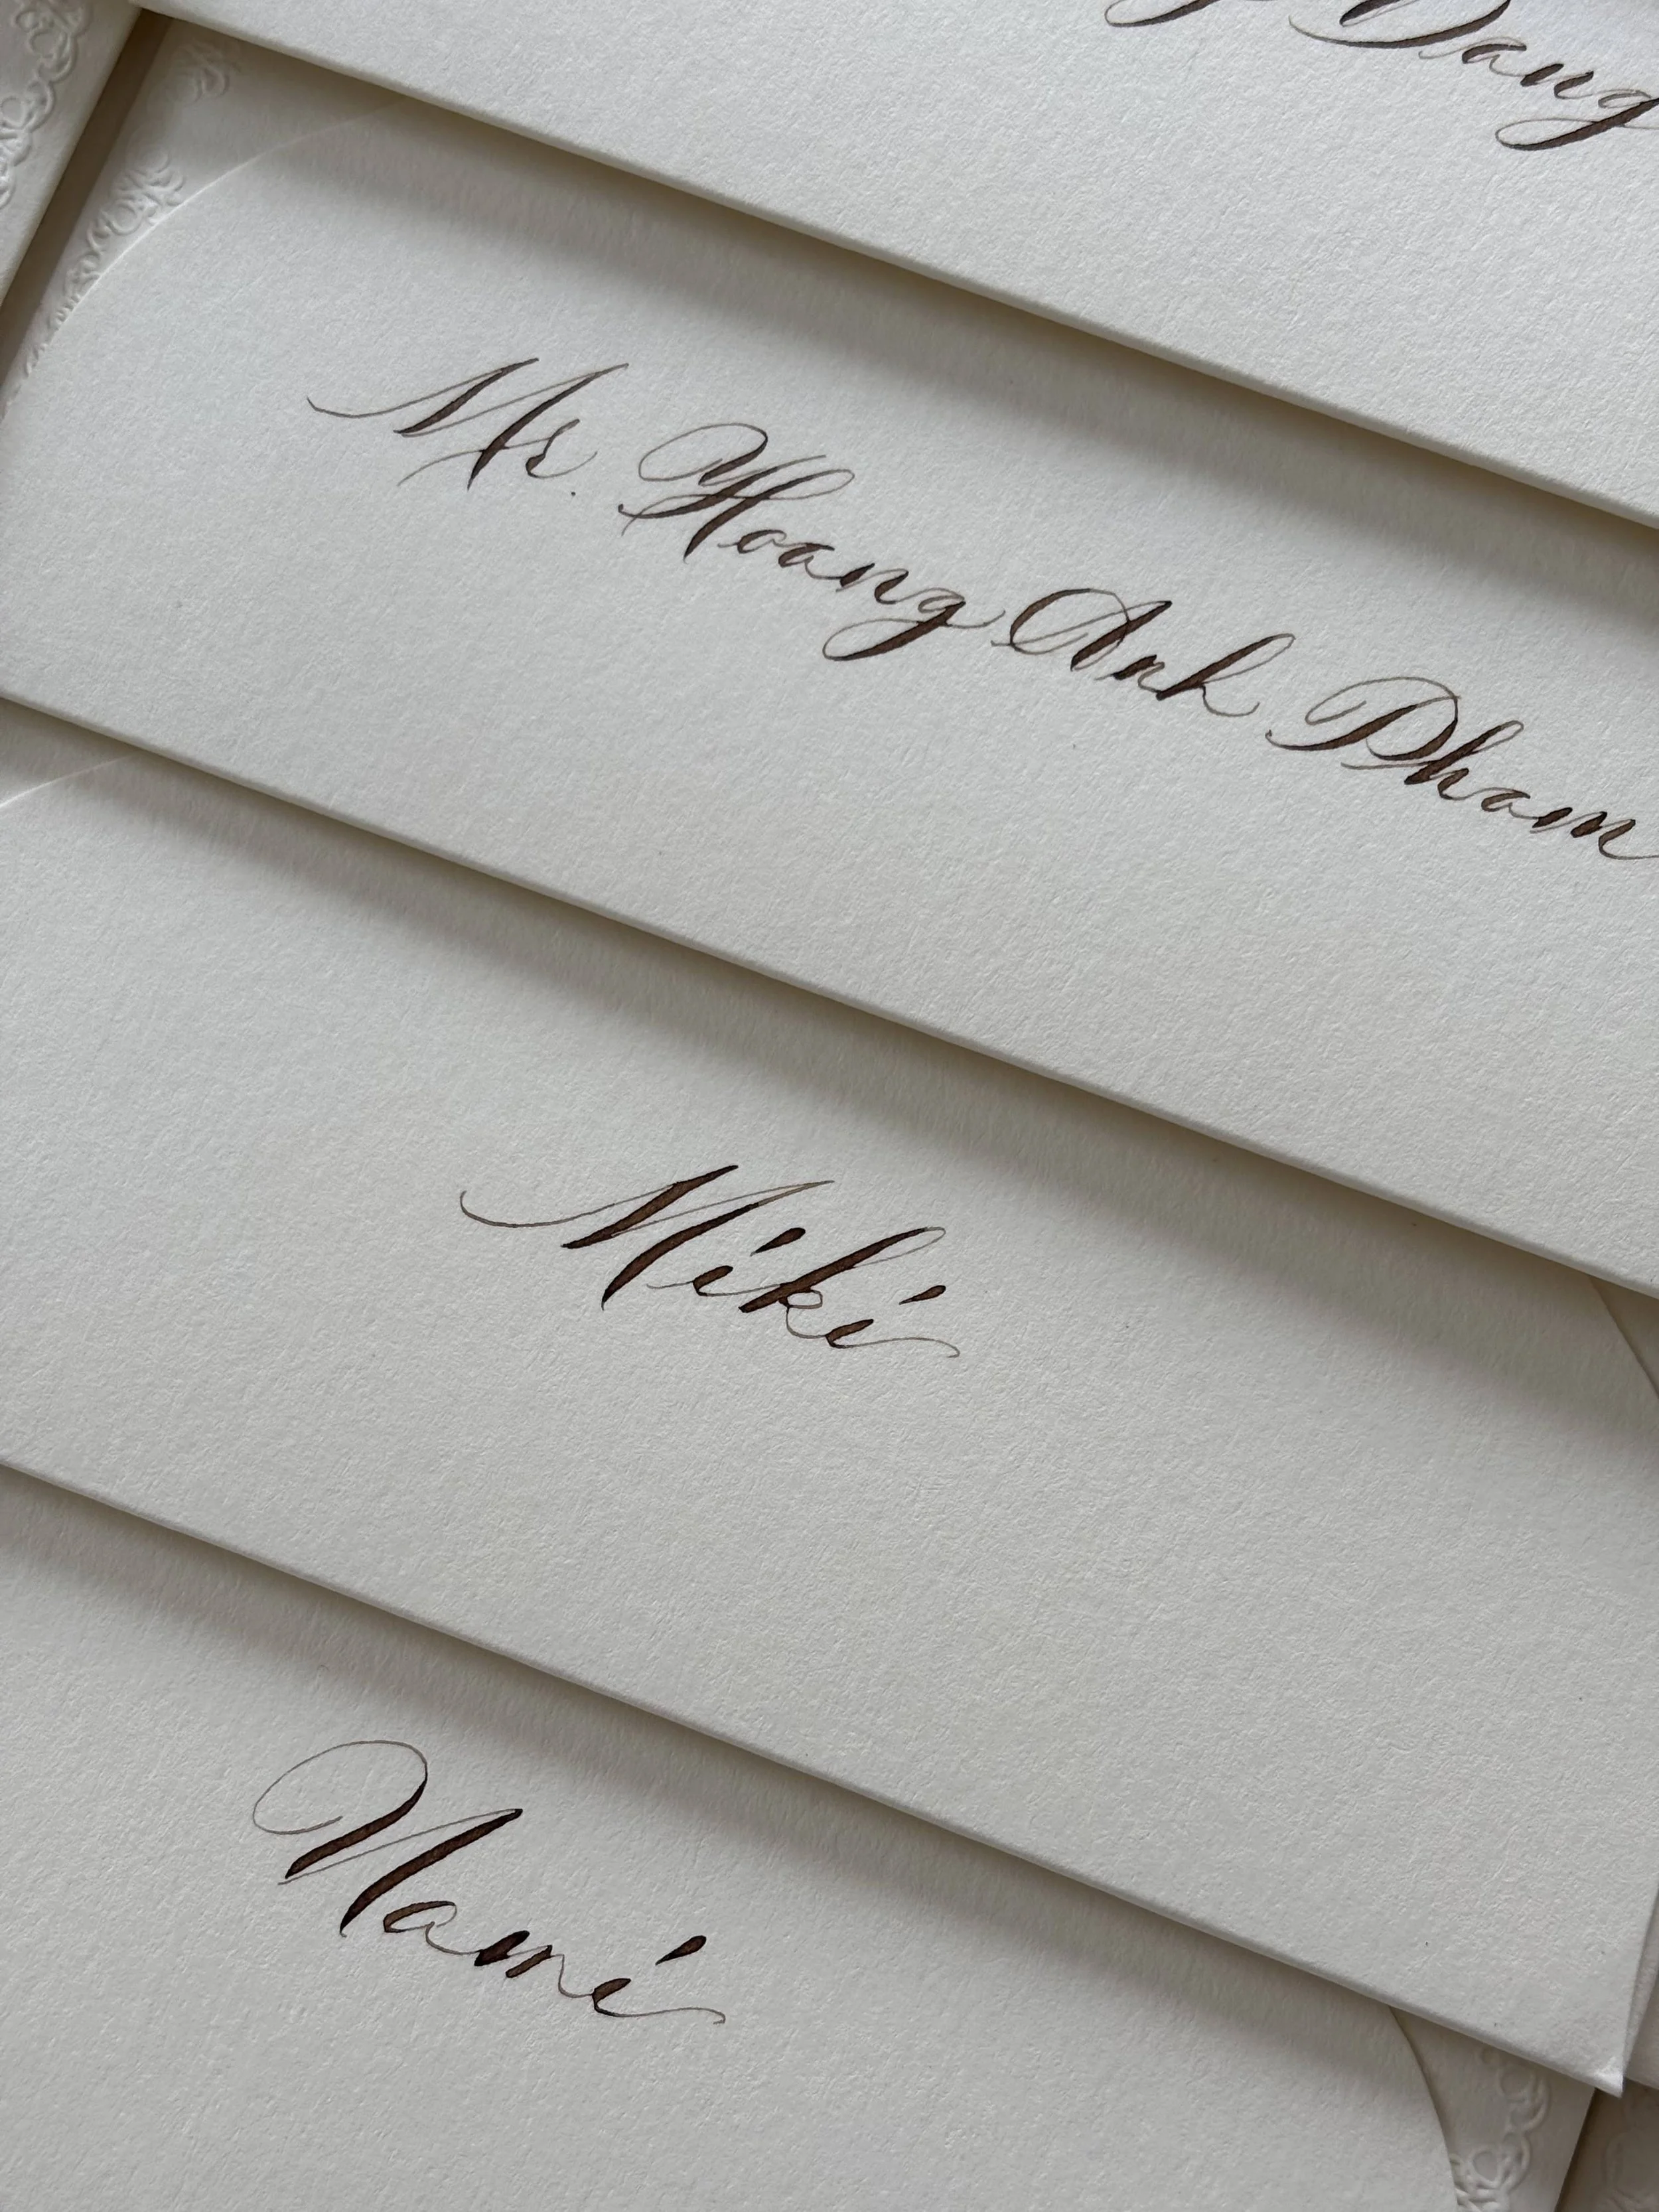 Dang
Mr. Hoang Anh Pham
Miki
Nami